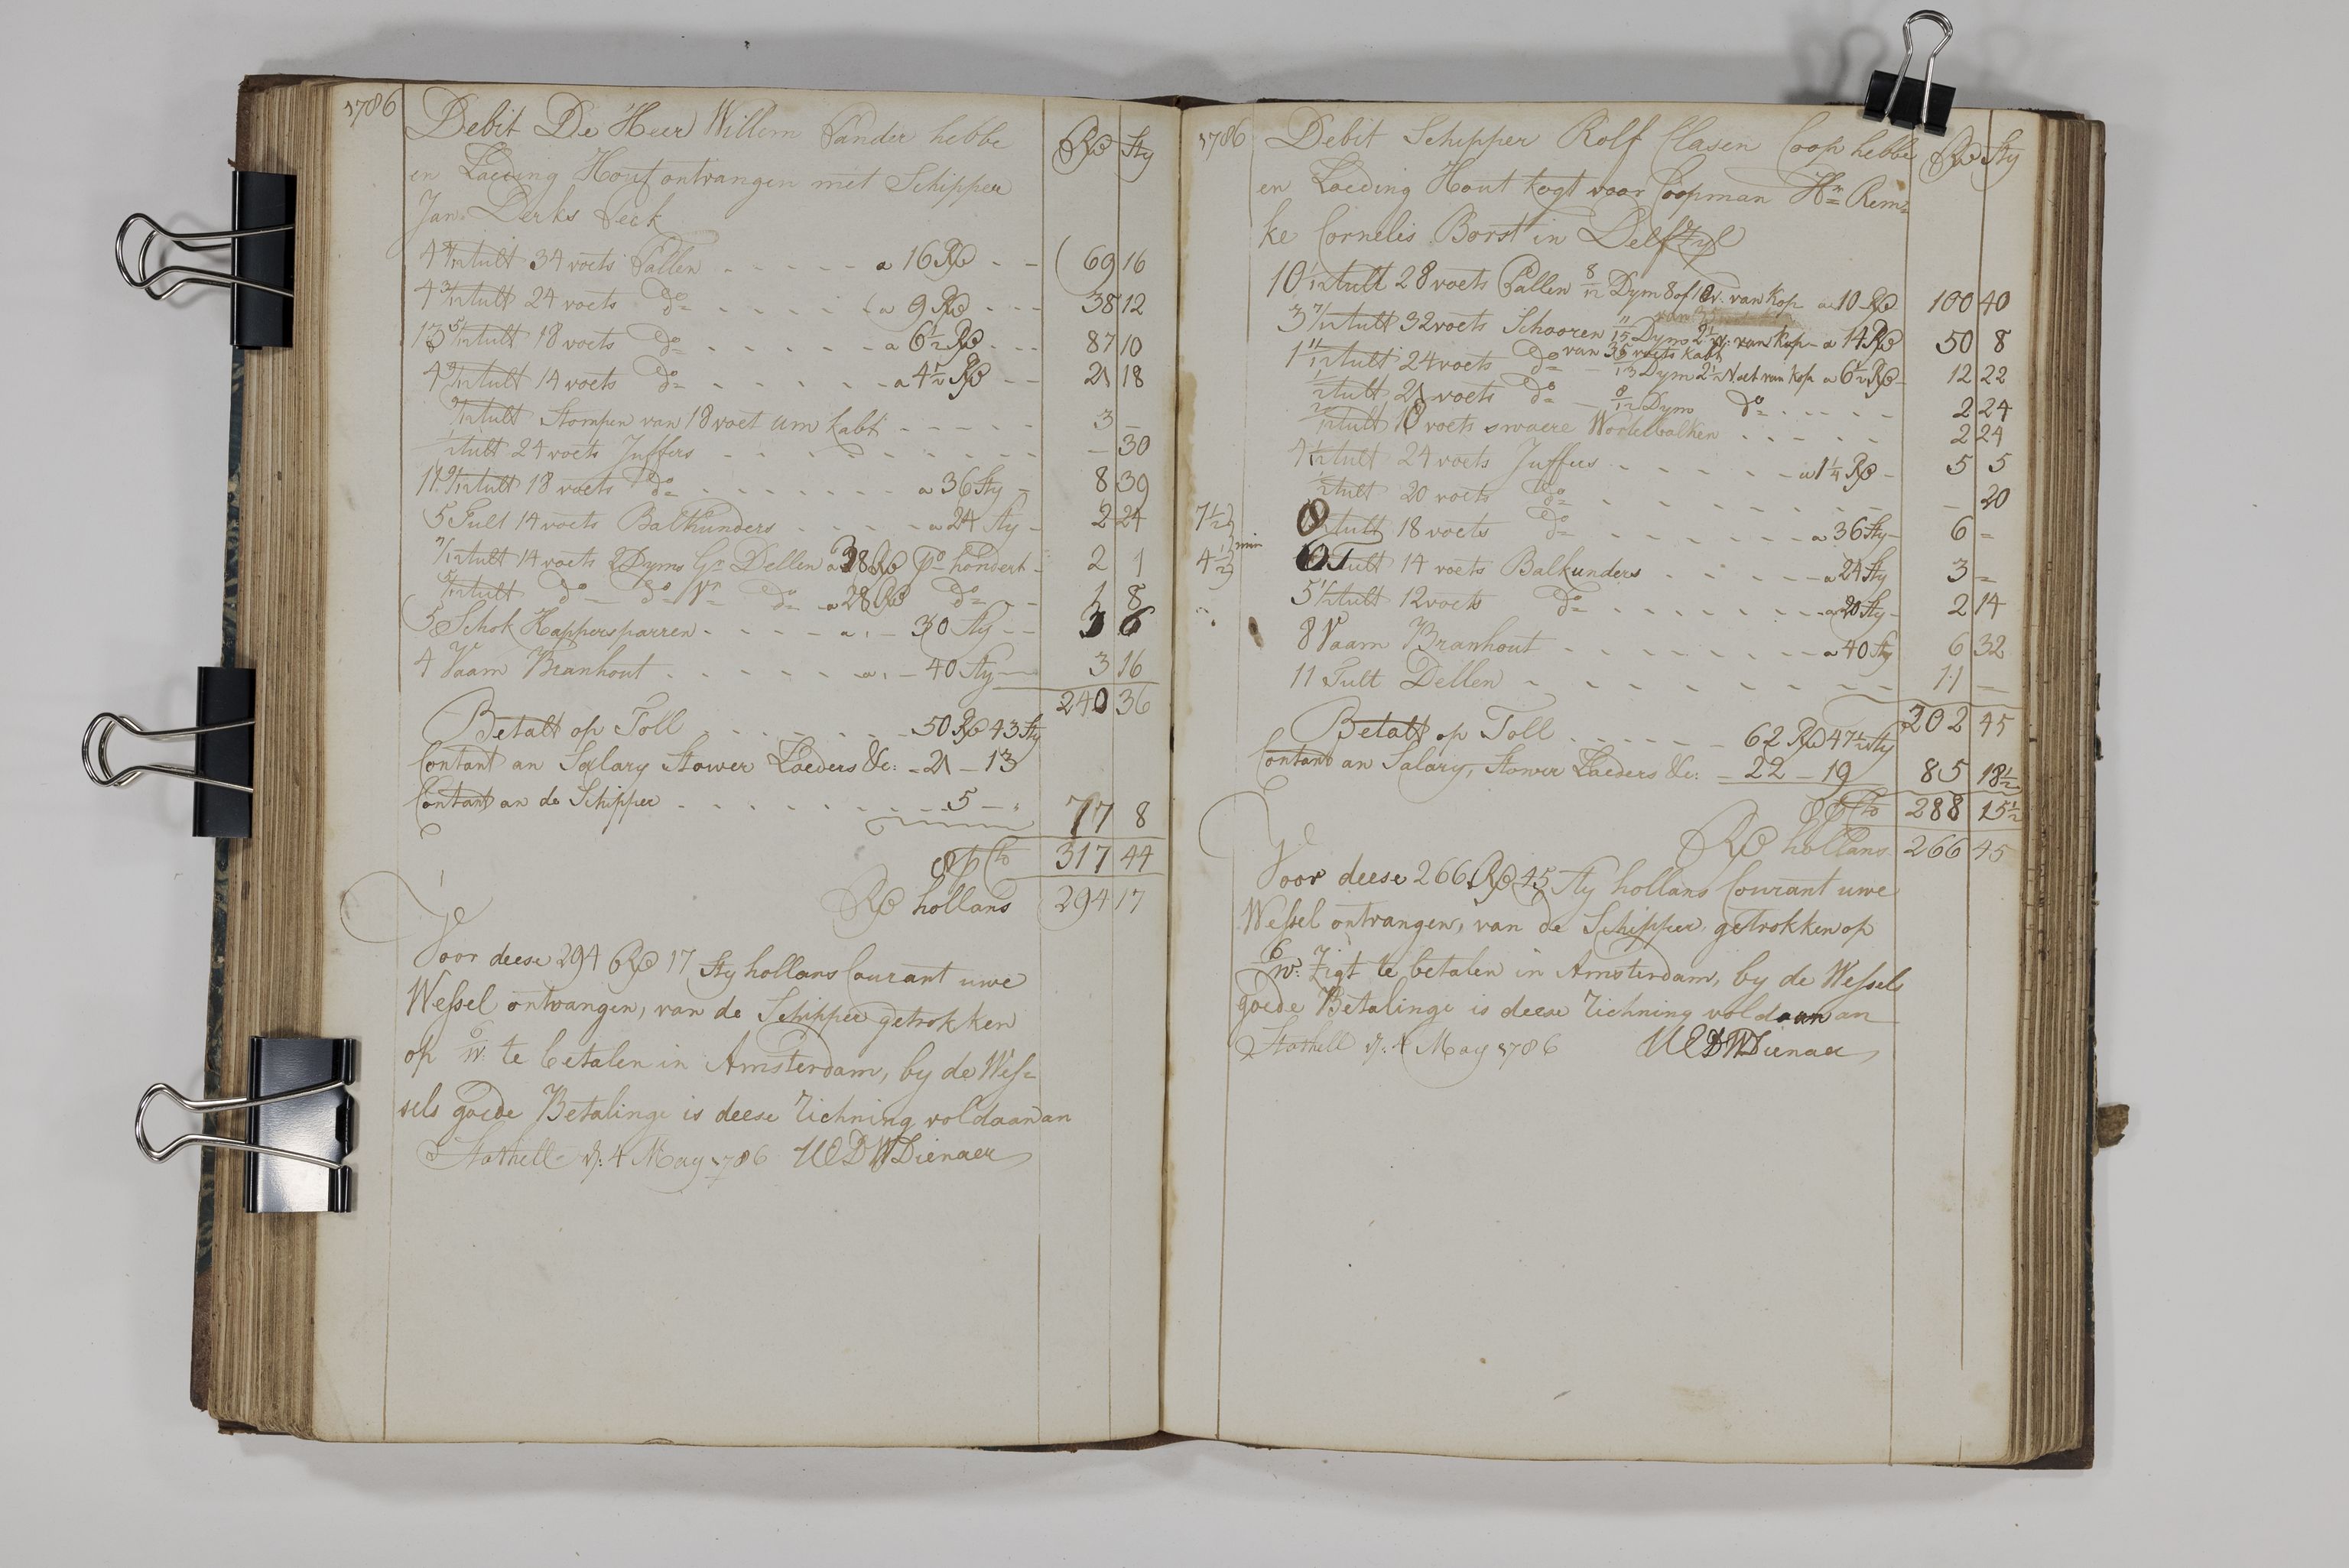 1786 Debit De Heer Willem Sander hebbe Rd Sty
en Laeding Hout ontvangen met Schipper
Jan Derks Peck
4 4/12 tult 34 voets Pallen - - - - - a 16 Rd - - 69 16
4 3/12 tult 24 voets do - - - - - a 9 Rd - - - 38 12
13 5/12 tult 18 voets do - - - - - a 6½ Rd - - - 87 10
tult 14 voets do - - - - - a 4½ Rd - - 21 18
tult Stompen van 18 voet um kabt - - - - - 3 -
tult 24 voets Juffers - - - - - - - - - - 30
tult 18 voets do - - - - - - - a 36 Sty - 8 39
5 Tult 14 voets Balkunders - - - - - a 24 Sty - 2 24
7/12 tult 14 voets 2 Dyms Gr Dellen a 38 Rd po hondert - 2 1
5/12 tult do - do Vr do - a 28 Rd do - 1 8
5 Schok Kappersparren - - - - - a - 30 Sty - - 3 6
4 Vaam Branhout - - - - - - a - 40 Sty - 3 16
240 36
Betalt op Toll - - - - - - 50 Rd 43 Sty
Contant an Salary Stower Laeders &c: - 21 - 13
Contant an de Schipper - - - - - - - - - 5 - 77 8
8 p Cto 317 44
Rd hollans 294 17
Voor deese 294 Rd 17 Sty hollans Courant uwe
Wessel ontvangen, van de Schipper getrokken
op 6/w: te betalen in Amsterdam, by de Wes=
sels goede Betalinge is deese Richning voldaan an
Stathell d: 4 May 1786 UEDWDienaer
1786 Debit Schipper Rolf Clasen Coop hebbe Rd Sty
en Laeding Hout kogt voor Coopman Hr Rem=
ke Cornelis Borst in Delfzyl
10 1/12 tult 28 voets Pallen 8/12 Dym 8 of 10 v. van kop a 10 Rd 100 40
3 7/12 tult 32 voets Schooren 11/15 Dyms 2½ v: van kop - a 14 Rd 50 8
van 35 voets kabt
1 11/12 tult 24 voets do - Dym 2½ Voet van kop a 6½ Rd - 12 22
tult 21 voets do - 8/12 Dym do - - - - - 2 24
tult 18 voets swaere Wortelbalken - - - - - 2 24
4 1/12 tult 24 voets Juffers - - - - - - a 1¼ Rd - 5 5
tult 20 voets do - - - - - - - - - 20
7½ 8 tult 18 voets do - - - - - - - a 36 Sty - 6 -
min
4½ 6 Tult 14 voets Balkunders - - - - - a 24 Sty 3 -
tult 12 voets do - - - - - - - a 20 Sty - 2 14
8 Vaam Branhout - - - - - - - - a 40 Sty 6 32
11 Tult Dellen - - - - - - - - - 11 -
202 45
Betalt op Toll - - - - - - 62 Rd 47½ Sty
Contant an Salary, Stower Laeders &c: - 22 - 19 85 18½
8 p Cto 288 15½
Rd hollans 266 45
Voor deese 266 Rd 45 Sty hollans Courant uwe
Wessel ontvangen, van de Schipper, getrokken op
6/w: Zigt te betalen in Amsterdam, by de Wessels
goede Betalinge is deese Richning voldaan an
Stathell d: 4 May 1786 UEDWDienaer